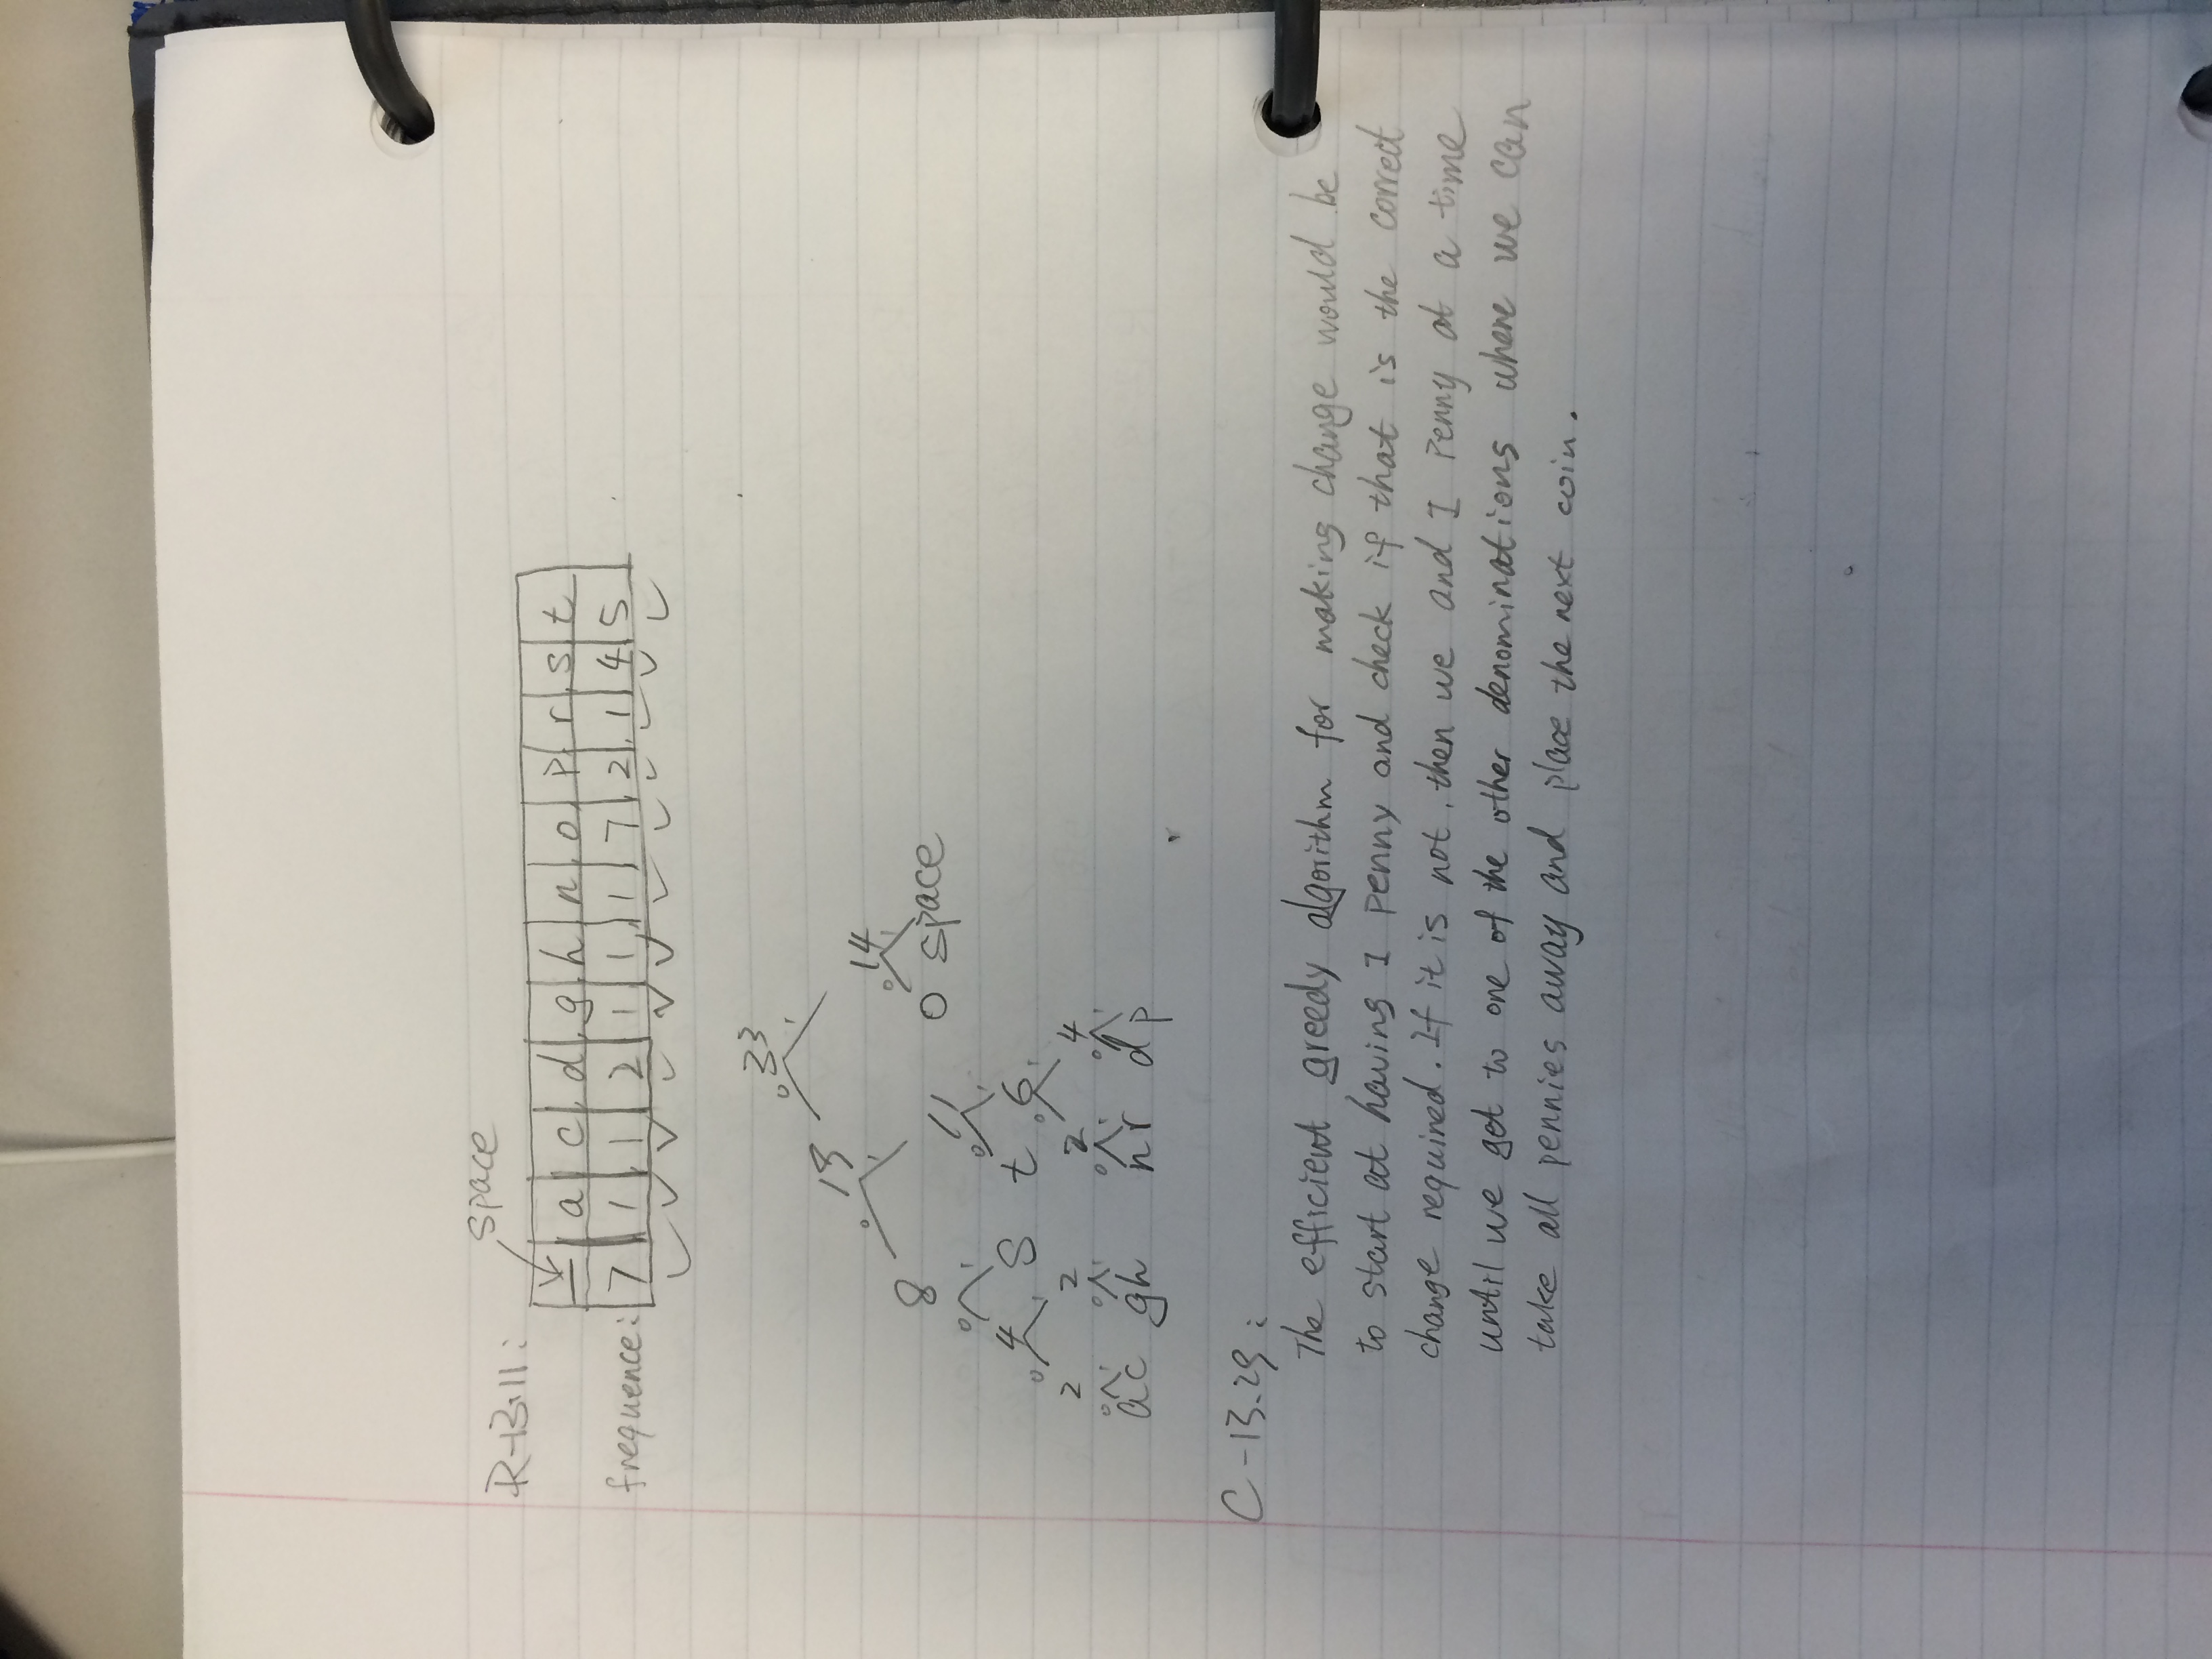 space
R-13.11:
_ a c d g h n o p r s t
frequence: 7 1 1 2 1 1 1 7 2 1 4 5
33
0 1
19
0 1
14
0 1
8
11
o space
0 1
0 1
4 s t 6
0 1
0 1
2 2 2 4
0 1 0 1 0 1 0 1
a c g h n r d p
C-13.29:
The efficient greedy algorithm for making change would be
to start at having 1 penny and check if that is the correct
change required. If it is not, then we and 1 penny at a time
until we get to one of the other denominations where we can
take all pennies away and place the next coin.